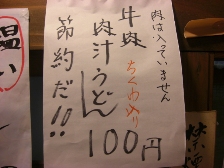 肉は入っていません
牛肉 ちくわ入り
肉汁うどん
100円
節約だ!!
温
い